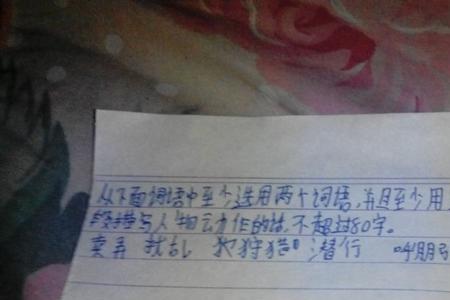 从下面词语中至少选用两个词语,并且至少用
描写人物动作的话,不超过80字。
卖弄 扰乱 狩猎 潜行 呼朋